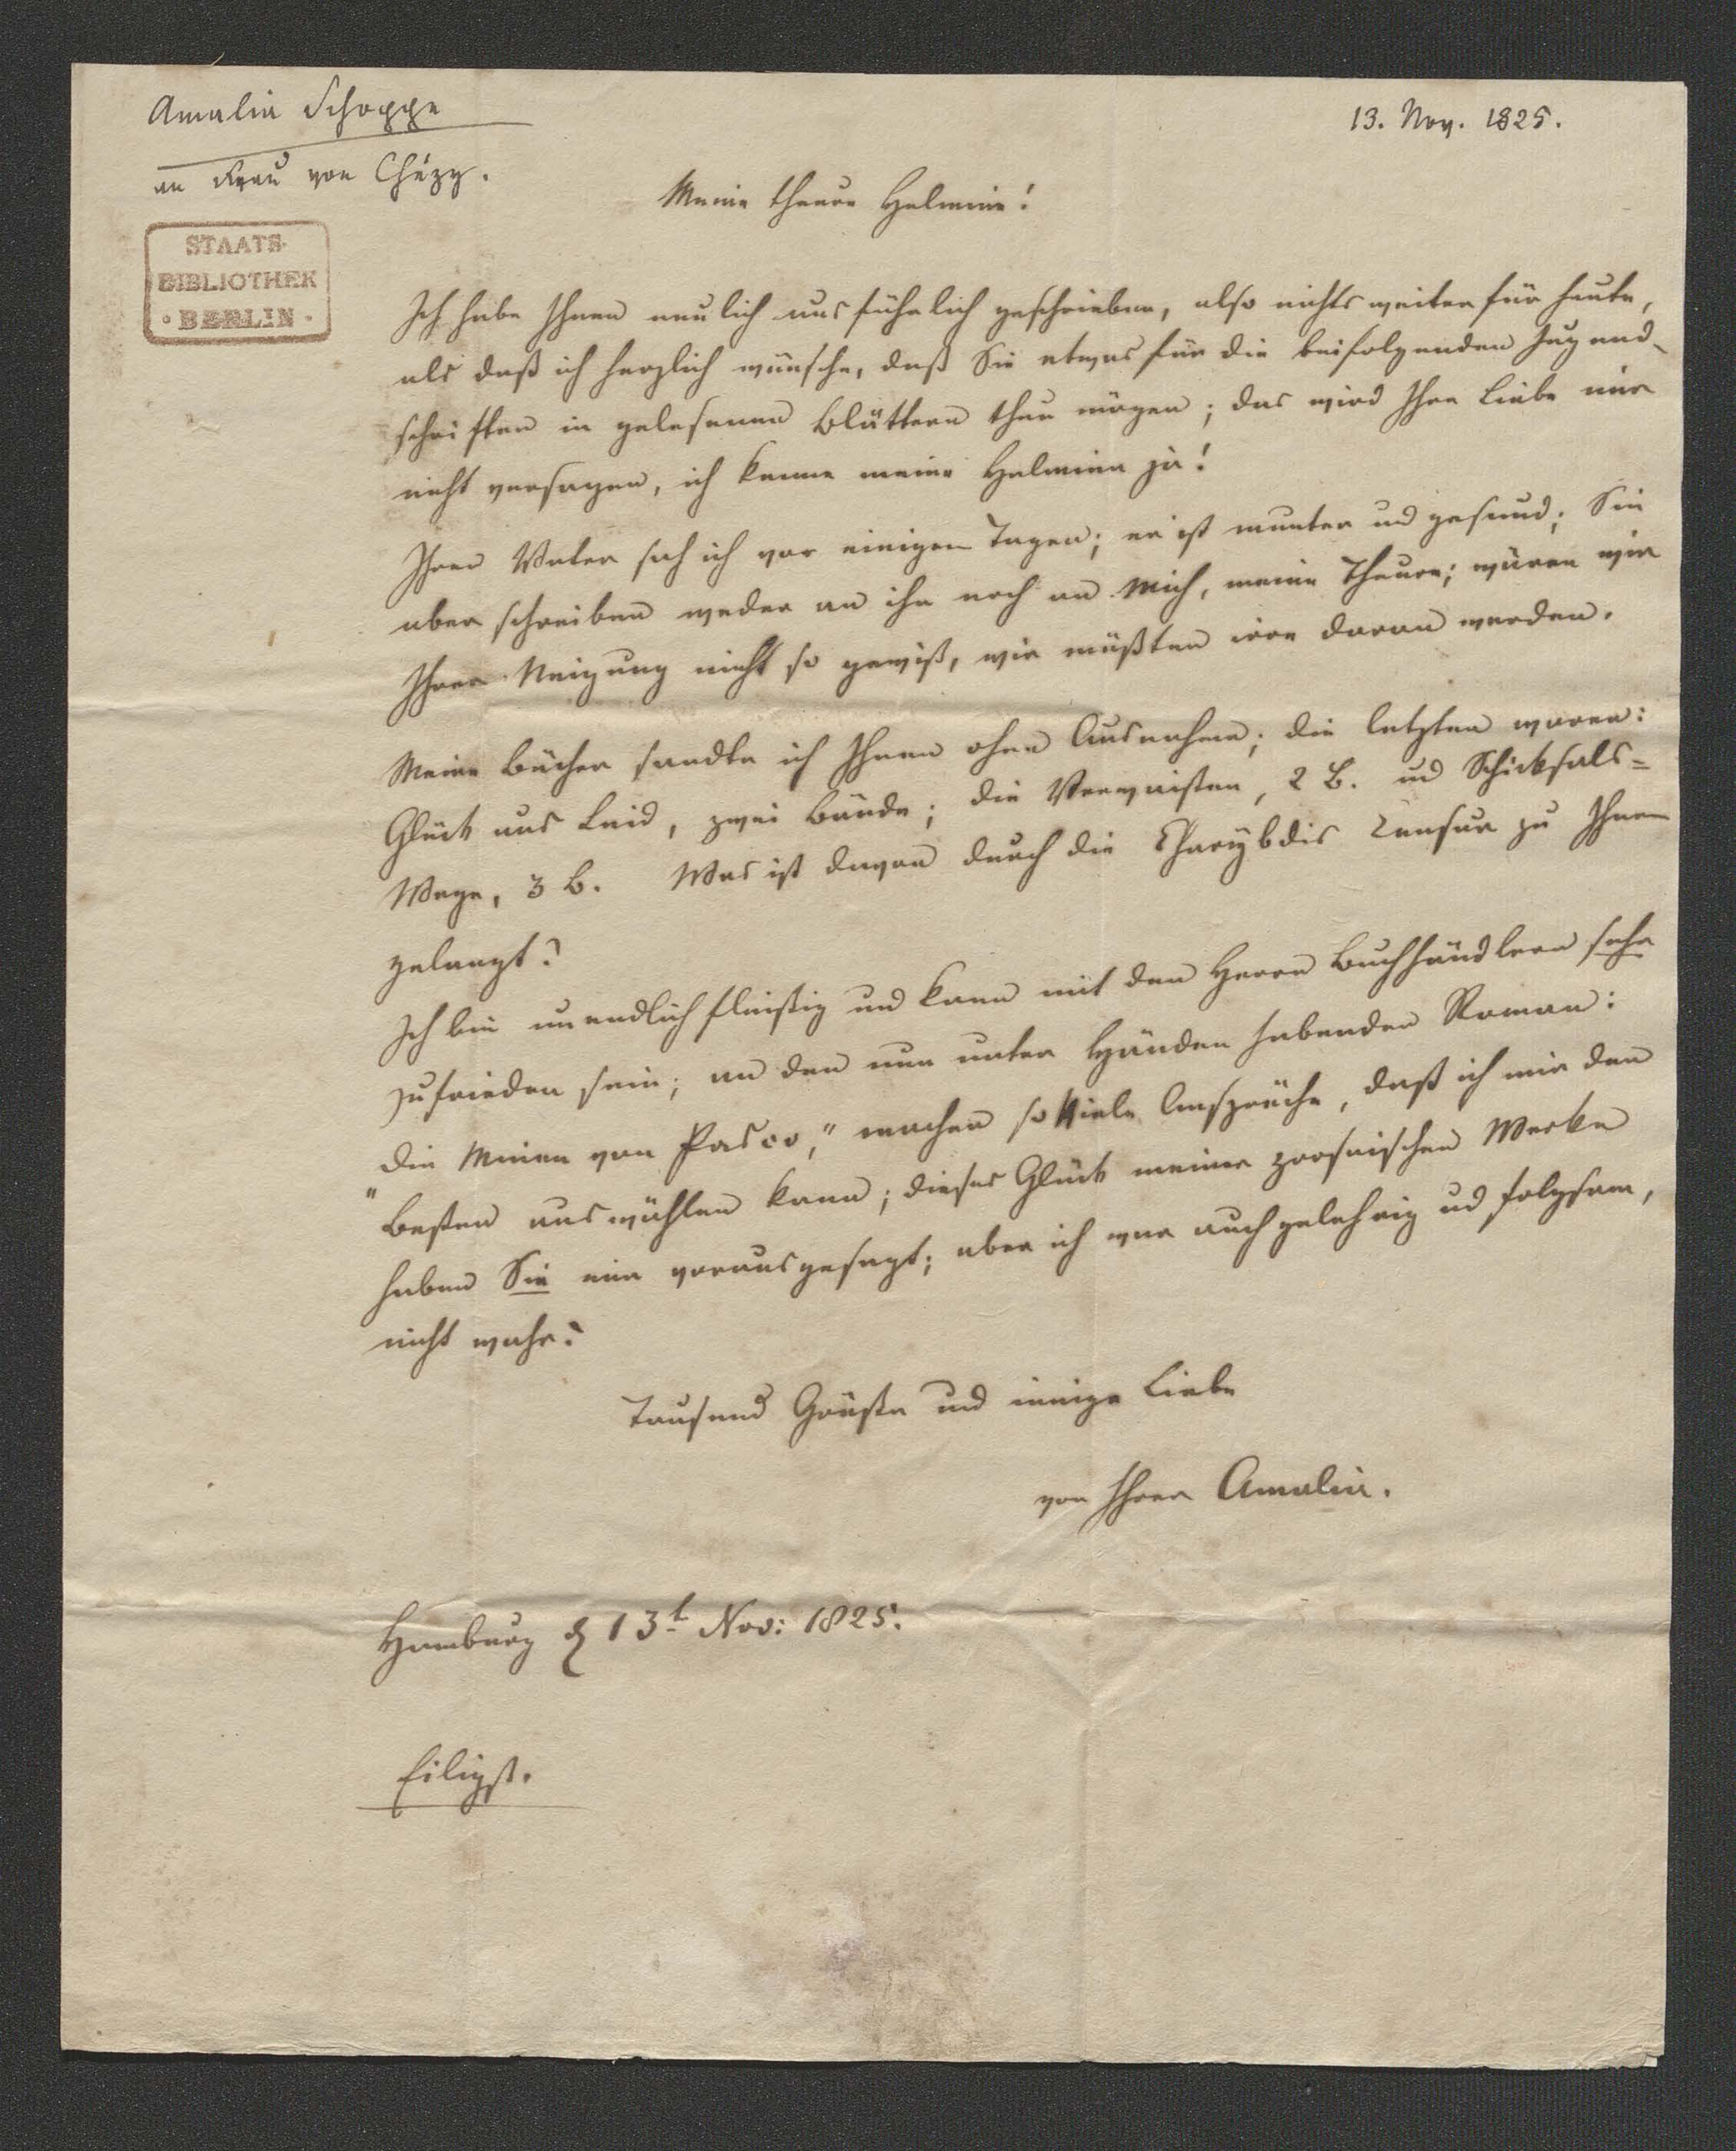 Amalia Schoppe
13. Nov. 1825.
an Frau von Chézy.
STAATS-
BIBLIOTHEK
· BERLIN ·
Meine theure Helmine!
Ich habe Ihnen neulich ausführlich geschrieben, also nichts weiter für heute,
als daß ich herzlich wünsche, daß Sie etwas für die beifolgenden Jugend-
schriften in gelesenen Blättern thun mögen; das wird Ihre Liebe mir
nicht versagen, ich kenne meine Helmina ja!
Ihren Vater sah ich vor einigen Tagen; er ist munter und gesund; Sie
aber schreiben weder an ihn noch an mich, meine Theure; wären wir
Ihrer Neigung nicht so gewiß, wir müßten irre daran werden.
Meine Bücher sandte ich Ihnen ohne Ausnahme; die letzten waren:
Glück aus Leid, zwei Bände; die Verwaisten, 2 B. und Schicksals=
Wege, 3 B. Was ist davon durch die Charybdis Censur zu Ihnen
gelangt?
Ich bin unendlich fleißig und kann mit den Herrn Buchhändlern sehr
zufrieden sein; an den nun unter Händen habenden Roman:
„die Minen von Pasco," machen so viele Ansprüche, daß ich mir den
Besten auswählen kann; dieses Glück meiner prosaischen Werke
haben Sie mir vorausgesagt; aber ich war auch gelehrig und folgsam,
nicht wahr?
Tausend Grüße und innige Liebe
von Ihrer Amalia.
Hamburg d 13t Nov: 1825.
Eiligst.